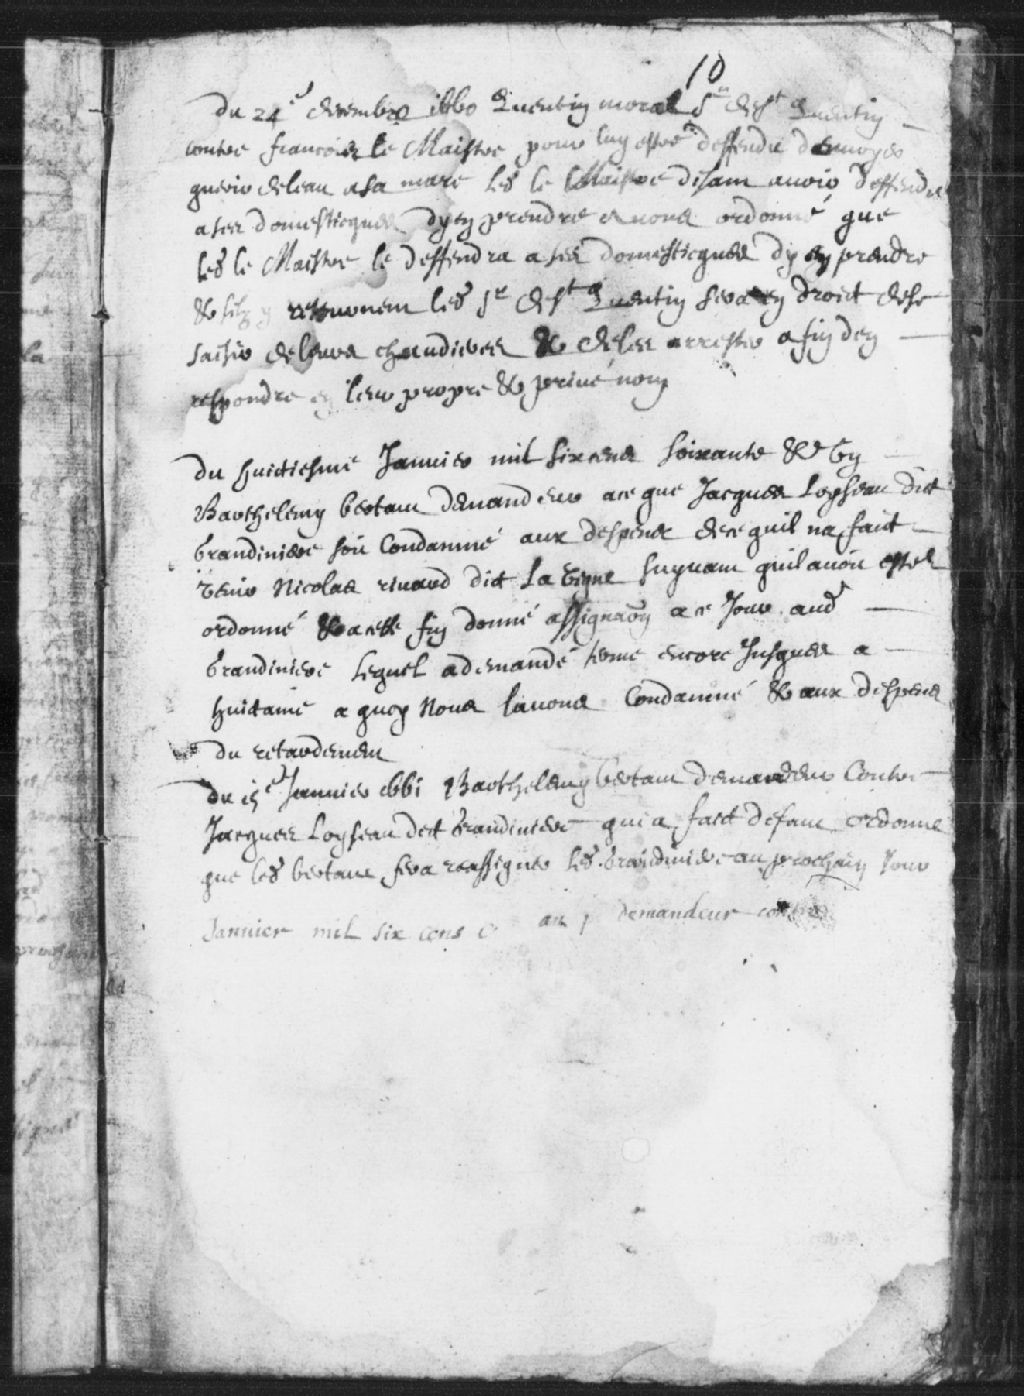 10
du 24e decembre 1660 Quentin moral Sr de St Quentin
contre francois le Maistre pour luy estre deffendu denvoyer
querir de leau a sa mare led le Maistre disant avoir deffendu
a ses domesticques dy en prendre et nous ordonné que
led le Maistre le deffendra a ses domesticques dy en prendre
& silz y retournent led Sr de St Quentin sera en droict de se
saisir de leurs chaudieres & de les arrester a fin den
respondre en leur propre & privé nom
du huictiesme Janvier mil six cens soixante & un
Barthelemy bertaut demandeur a ce que Jacques Loyseau dict
Grandiniere soit Condamné aux despens de ce quil na faict
venir Nicolas rivard dict La Vigne suyvant quil avoit esté
ordonné & a cette fin donné assignaon a ce Jour aud
Grandiniere lequel a demandé terme encore Jusques a
huictaine a quoy Nous lavons Condamné & aux despens
du retardement
du 15e Janvier 1661 Barthelemy bertaut demandeur Contre
Jacques Loyseau dict Grandiniere qui a faict defaut ordonné
que led bertaut fera reassigner led Grandiniere au prochain Jour
Janvier mil six cens demandeur contre